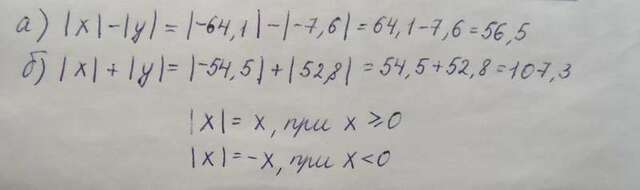 а) |x|-|y| = |-64,1|-|-7,6| = 64,1-7,6=56,5
б) |x|+|y|= |-54,5|+|52,8| = 54,5+52,8=107,3
|x|= x, при x ≥0
|x|=-x, при x<0